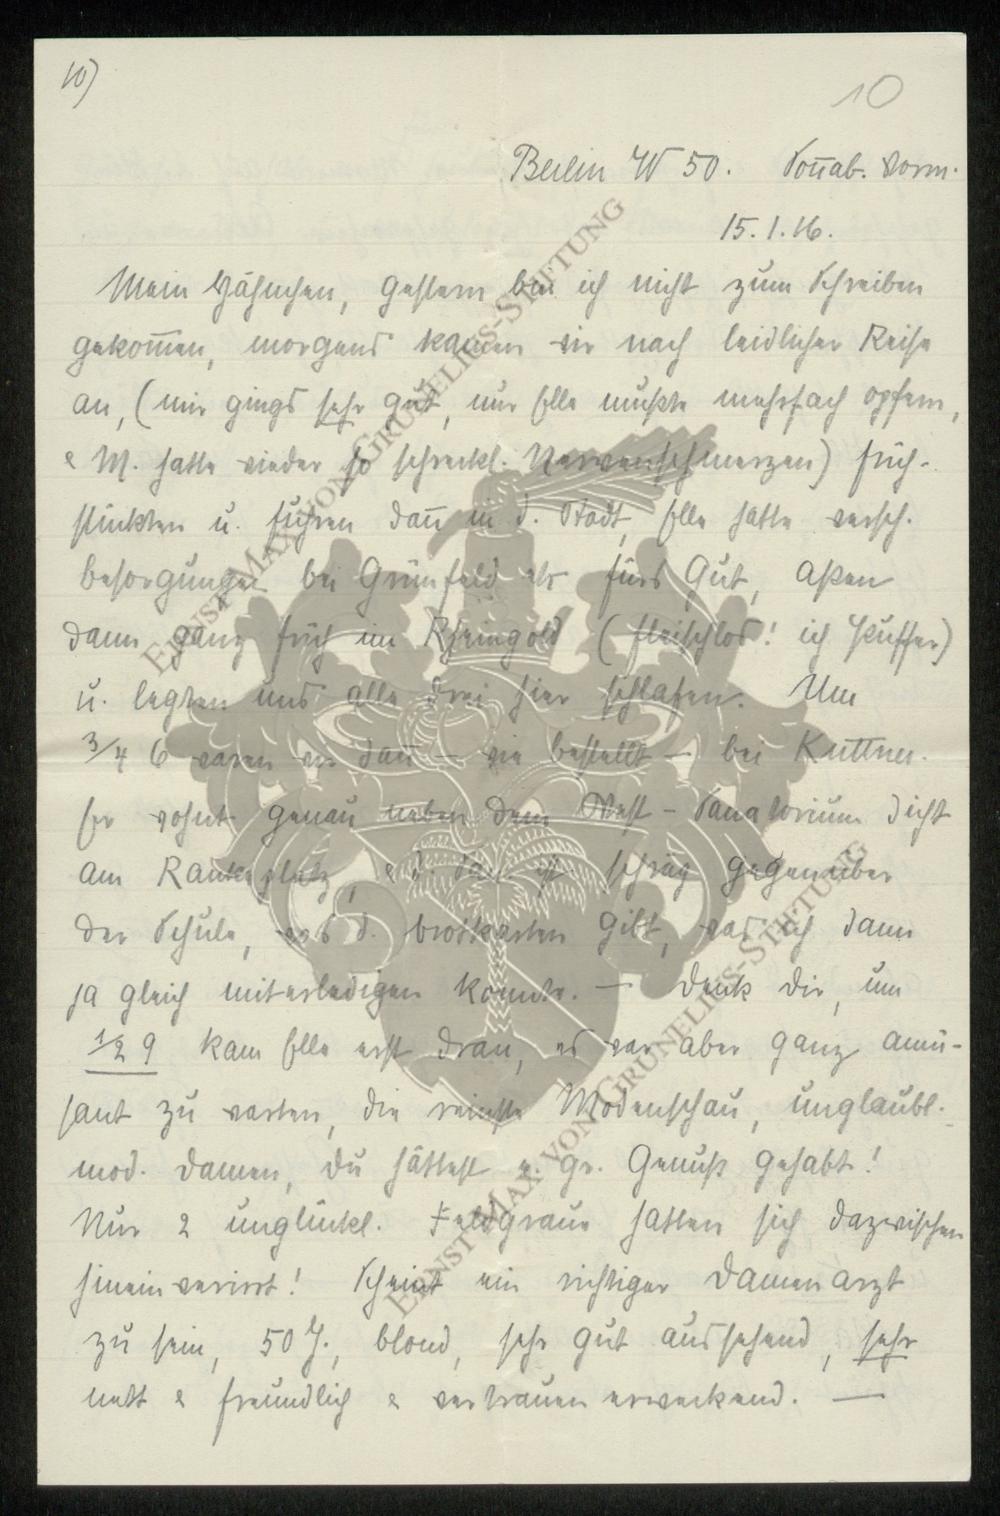 10)
10
Berlin W 50. Sonnab. Vorm.
15.1.16.
Mein Hähnchen, gestern bin ich nicht zum Schreiben
gekom̅en, morgens kamen wir nach leidlicher Reise
an, (mir gings sehr gut, nur Elle mußte mehrfach opfern,
& M. hatte wieder so schreckl. Nervenschmerzen) früh-
stückten u. fuhren dan̅ in d. Stadt, Elle hatte versch.
Besorgungen bei Grünfeld etc fürs Gut, aßen
dann ganz früh im Rheingold (fleischlos! ich Puffer)
u. legten uns alle drei hier schlafen. Um
3/4 6 waren wir dan̅ — wie bestellt — bei Kuttner.
Er wohnt genau neben dem West-Sanatorium dicht
am Rankeplatz, & d. ist schräg gegenüber
der Schule, wos d. Brotkarten gibt, was ich dann
ja gleich miterledigen konnte. — Denk Dir, um
1/2 9 kam Elle erst dran, es war aber ganz amü-
sant zu warten, die reinste Modenschau, unglaubl.
mod. Damen, Du hättest e. gr. Genuß gehabt!
Nur 2 unglückl. Feldgraue hatten sich dazwischen
hineinverirrt! Scheint ein richtiger Damenarzt
zu sein, 50 J., blond, sehr gut aussehend, sehr
nett & freundlich & vertrauenerweckend. —
ERNST-MAX-VON-GRUNELIUS-STIFTUNG
ERNST-MAX-VON-GRUNELIUS-STIFTUNG